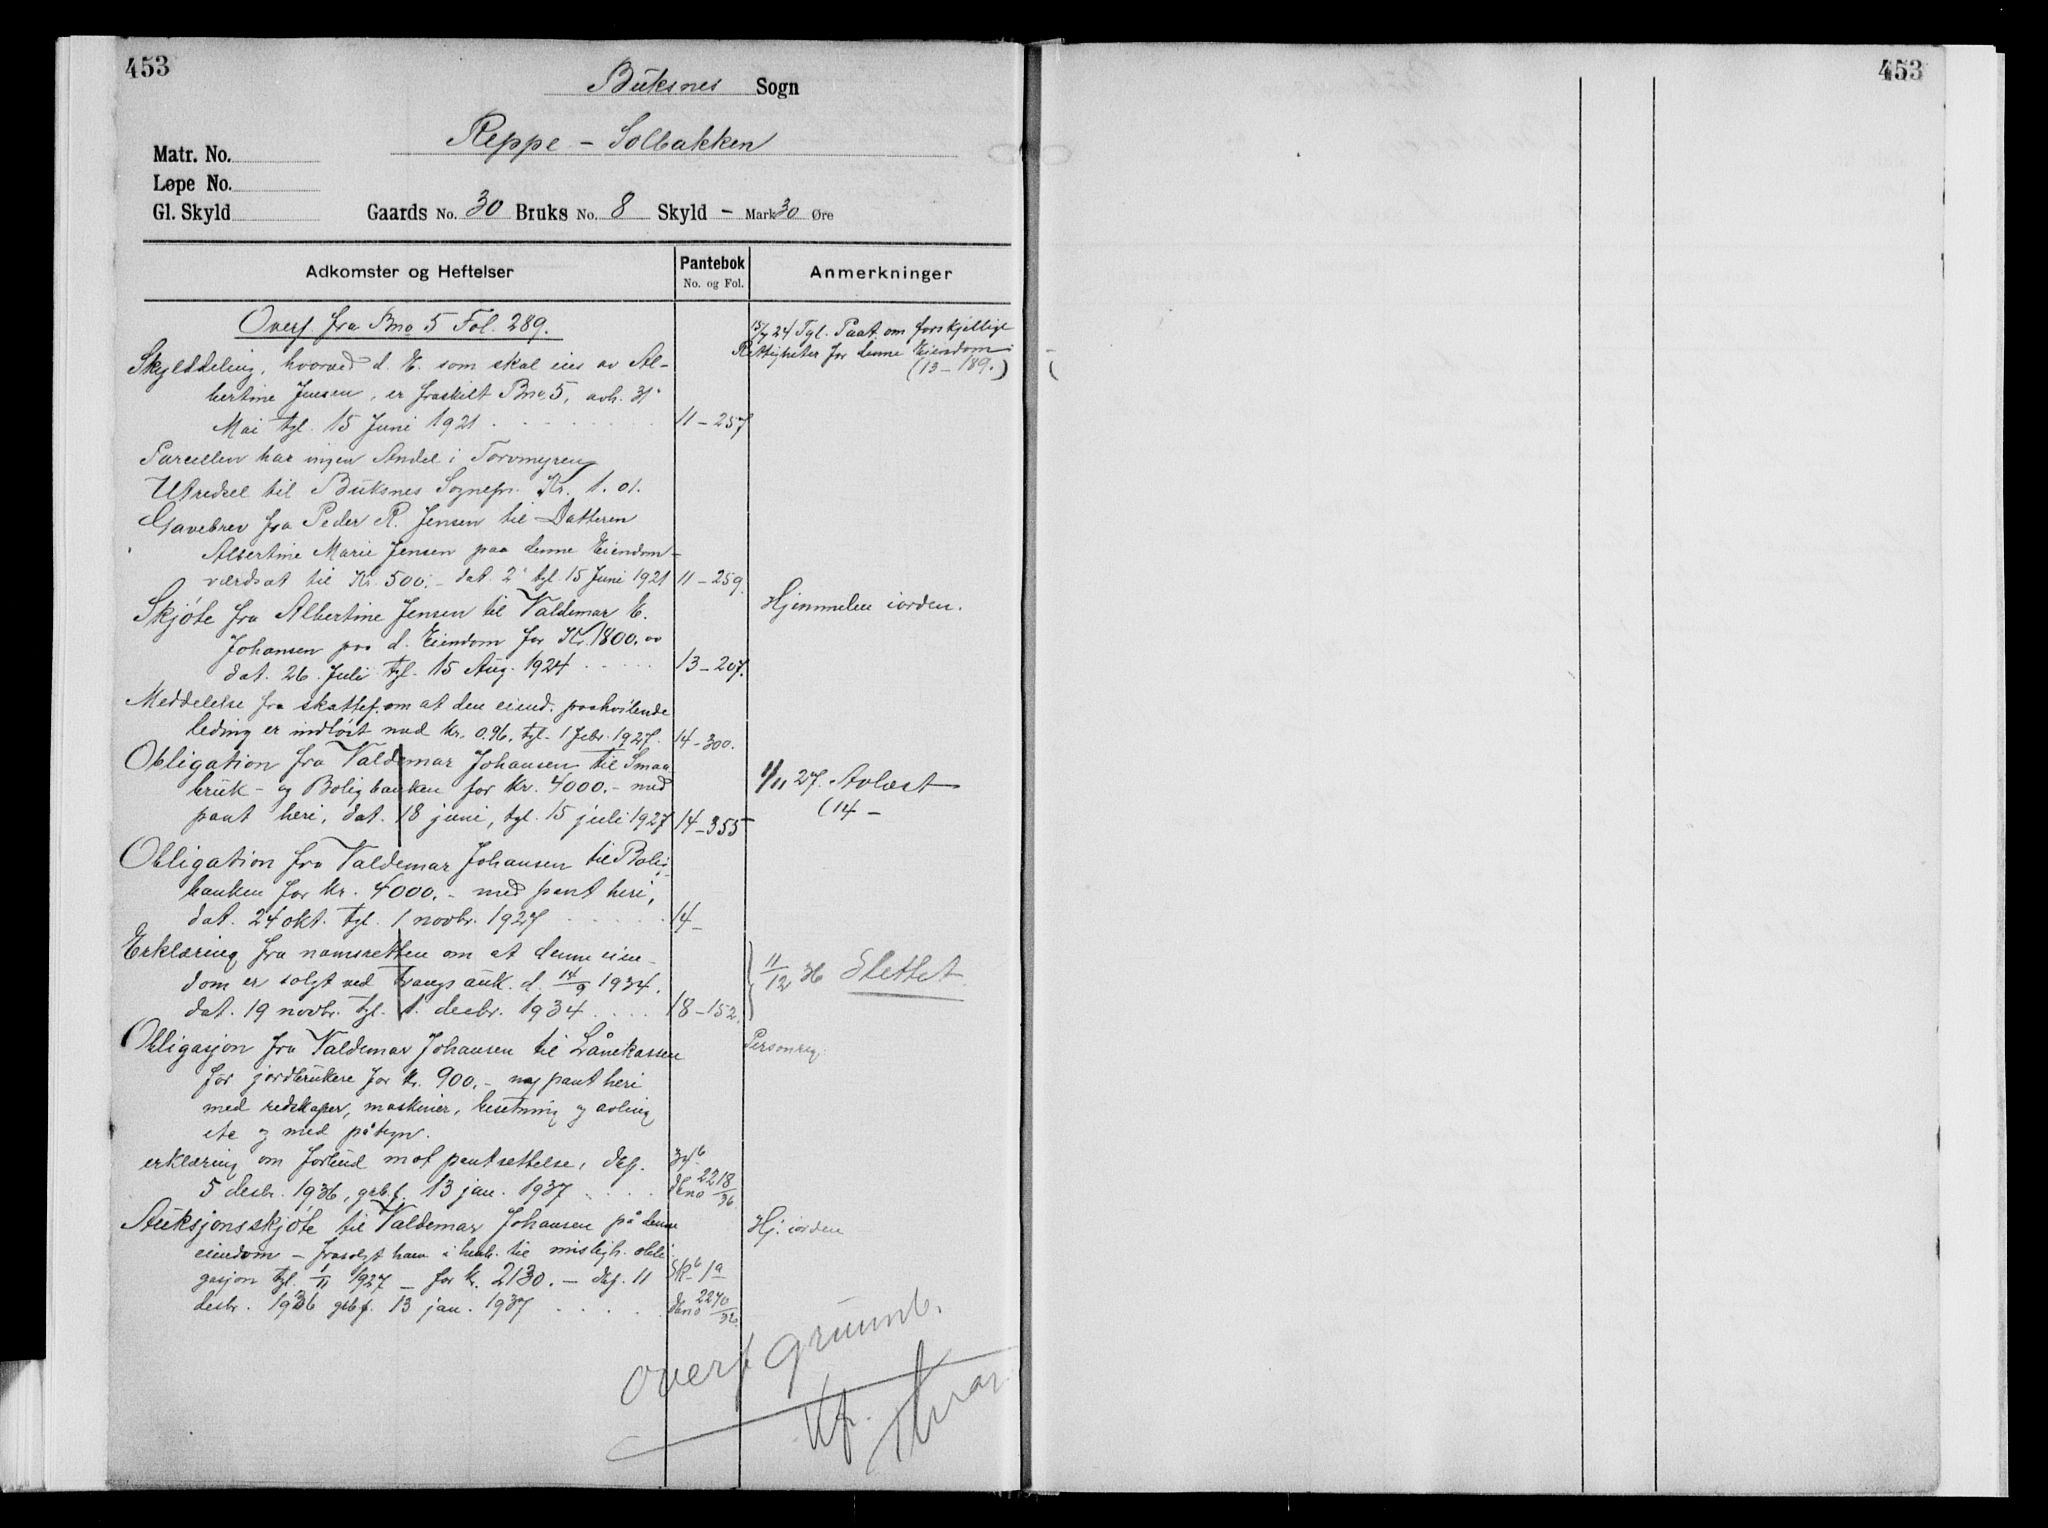 453
Buksnes Sogn
Reppe - Solbakken
Matr. No.
Løpe No.
Gl. Skyld
Gaards No. 30 Bruks No. 8 Skyld - Mark 30 Øre
Adkomster og Heftelser
Pantebok
No. og Fol.
Anmerkninger
Overf fra Bno 5 Fol. 289.
Skylddeling, hvorved d. E. som skal eies av Al-
bertine Jensen, er fraskilt Bno 5, avh. 31
Mai tgl. 15 Juni 1921 11-257
15/7 24 Tgl. Paat. om forskjellige
Rettigheter for denne Eiendom
(13-189.)
Parcellen har ingen Andel i Torvmyren
Utredsel til Buksnes Sognepr. Kr. 1.01.
Gavebrev fra Peder R. Jensen til Datteren
Albertine Marie Jensen paa denne Eiendom-
værdsat til Kr. 500.- dat. 2 tgl. 15 Juni 1921 11-259.
Skjøte fra Albertine Jensen til Valdemar E.
Johansen paa d. Eiendom for Kr. 1800.00
dat. 26. Juli tgl. 15 Aug. 1924 13-207.
Hjemmelen iorden.
Meddelelse fra skattef. om at den eiend. paahvilende
leding er indløst med kr. 0.96. tgl. 1 febr. 1927. 14-300.
Obligation fra Valdemar Johansen til Smaa
bruk- og Boligbanken for kr. 4000.- med
pant heri, dat. 18 juni, tgl. 15 juli 1927 14-355
1/11 27. Avlæst
(14 -
Obligation fra Valdemar Johansen til Bolig
banken for kr. 4000.- med pant heri,
dat. 24 okt. tgl. 1 novbr. 1927 14-
Erklæring fra namsretten om at denne eien-
dom er solgt ved tvangsauk. d. 14/9 1934.
dat. 19 novbr. tgl. 1. desbr. 1934 18-152.
11/12 36 Slettet.
Obligasjon fra Valdemar Johansen til Lånekassen
for jordbrukere for kr. 900.- m/ pant heri
med redskaper, maskiner, besetning og avling
etc og med påtegn.
Personreg.
erklæring om forbud mot pantsettelse, dag.
5 desbr. 1936, grb.f. 13 jan. 1937 dbno 2218/36
Auksjonsskjøte til Valdemar Johansen på denne
eiendom - frasolgt ham i henh. til misligh. obli
gasjon tgl. 1/11 1927 - for kr. 2130.- dag. 11
desbr. 1936 grb.f. 13 jan. 1937 dbno 2270/36.
Hj. iorden
Overf grunnb.
453